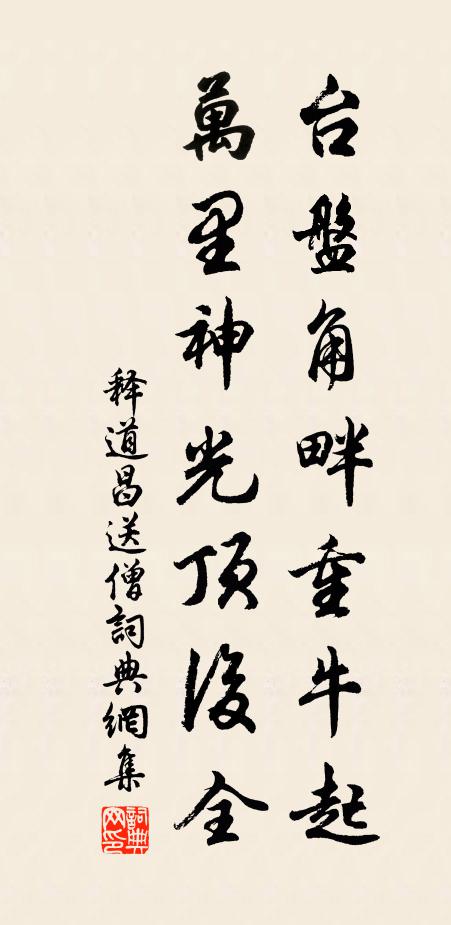 台盤角畔重牛起
萬里神光頂後全
释道昌送僧詞典網集
詞典网印